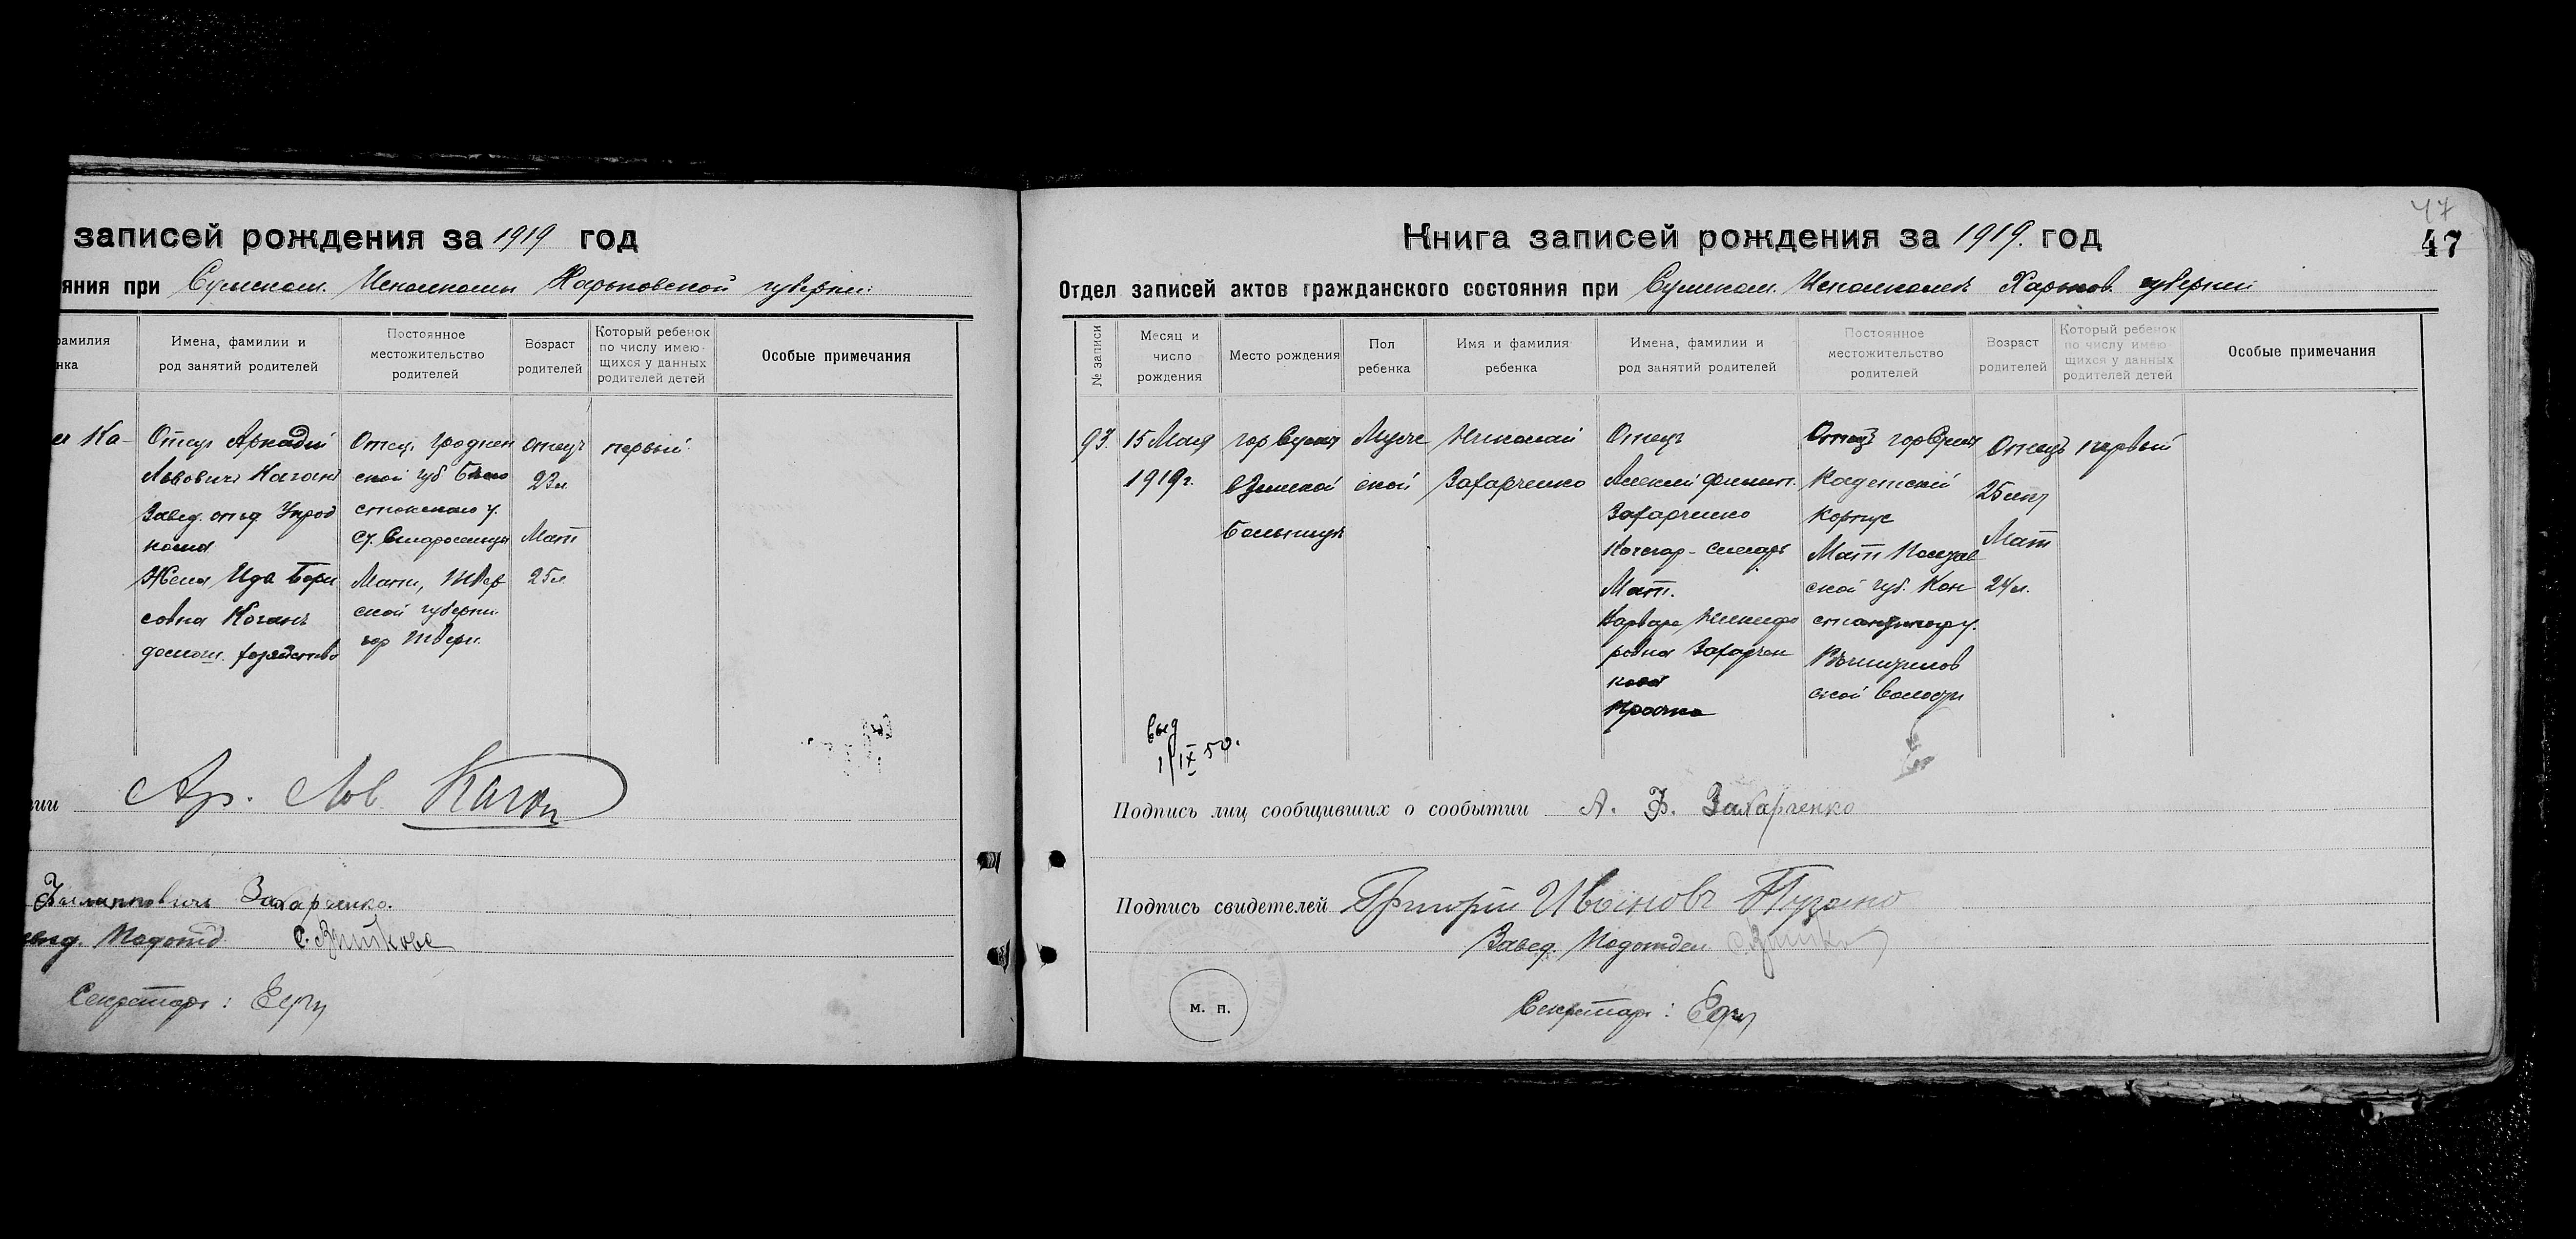 записей рождения за 1919 год
яния при Сумском Исполкоме Харьковской губернии
амилия
нка
Имена, фамилии и
род занятий родителей
Постоянное
местожительство
родителей
Возраст
родителей
Который ребенок
по числу имею-
щихся у данных
родителей детей
Особые примечания
Ка-
Отец Аркадий
Львович Каган
Завед. отд. Упрод
кома
Жена Ида Бори
совна Коганъ
домаш. хозяйство
Отец, Гроднен
ской губ Бело
стокского у.
Мать, Твер
ской губерни.
гор Твери.
Отецъ
23 л.
Мать
25 л.
первый
Ар. Лов. Каган
тии
Филиппович Захарченко.
Подотд.
Секретарь:
47
47
Книга записей рождения за 1919. год
Отдел записей актов гражданского состояния при Сумском Исполкоме Харьков. губернии
№ записи
Месяц и
число
рождения
Место рождения
Пол
ребенка
Имя и фамилия
ребенка
Имена, фамилии и
род занятий родителей
Постоянное
местожительство
родителей
Возраст
родителей
Который ребенок
по числу имею-
щихся у данных
родителей детей
Особые примечания
93.
15 Мая
1919 г.
гор Сумы
в Земской
больнице
Муже
ской
Николай
Захарченко
Отецъ
Алексей Филип.
Захарченко
Кочегар-слесарь
Мать.
Варвара Никифо
ровна Захарчен
кова
Прачка
Отецъ гор Сумы
Кадетский
корпус
Мать Полтав
ской губ. Кон
стантиногр у.
ской волости
Отецъ
25 лет
Мать
24 л.
первый
выд
1/IX 50.
Подпись лиц сообщивших о сообытии А. Ф. Захарченко
Подпись свидетелей Григорій Ивановъ
Завед. Подотдел.
м. п.
Секретарь: